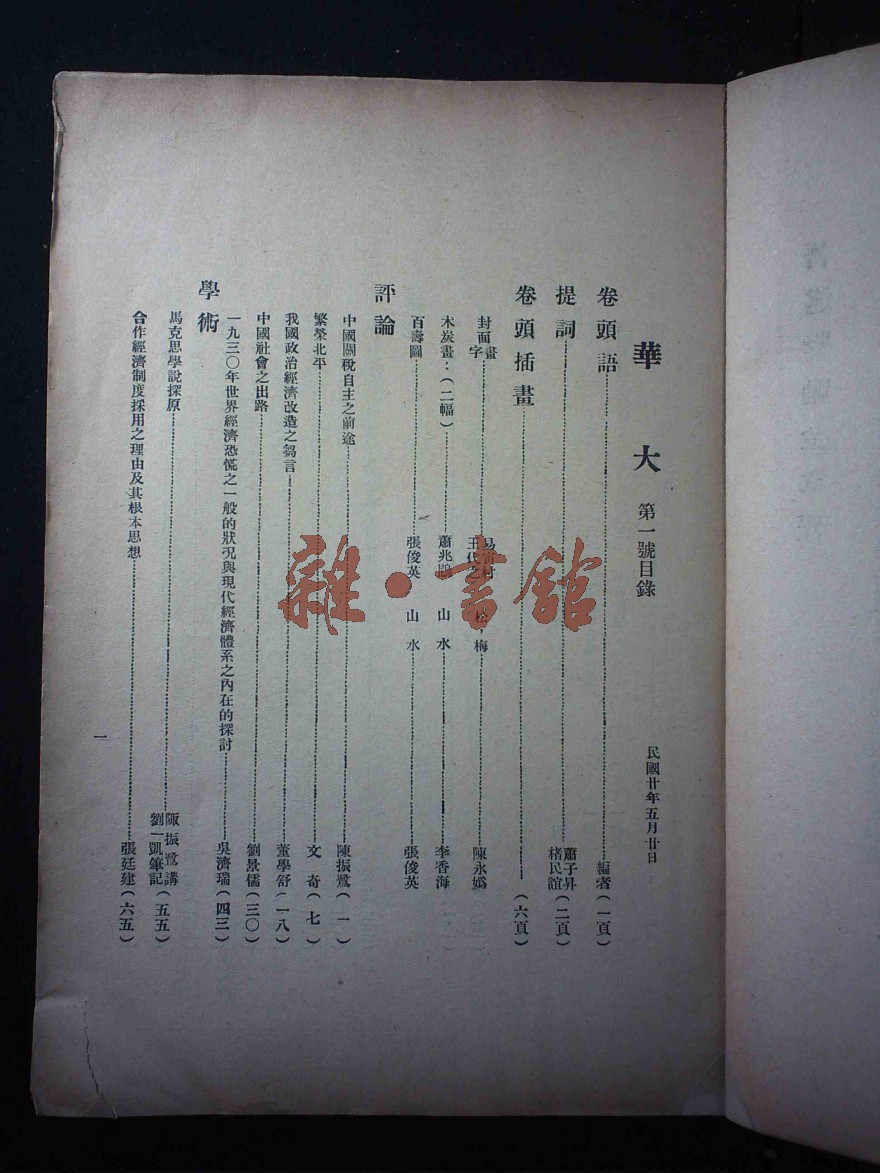 華大 第一號目錄
民國廿年五月廿日
卷頭語……編者（一頁）
提詞……蕭子昇 褚民誼（二頁）
卷頭插畫……（六頁）
封面畫字……王代之 松，梅……陳永嫣
木炭畫：（二幅）……蕭兆鵾 山水……李香海
百壽圖……張俊英 山水……張俊英
評論
中國關稅自主之前途……陳振鷺（一）
繁榮北平……文奇（七）
我國政治經濟改造之芻言……董學舒（一八）
中國社會之出路……劉景儒（三〇）
一九三〇年世界經濟恐慌之一般的狀況與現代經濟體系之內在的探討……吳濟瑞（四三）
學術
馬克思學說探原……陳振鷺講 劉一凱筆記（五五）
合作經濟制度採用之理由及其根本思想……張廷建（六五）
一
雜·書館